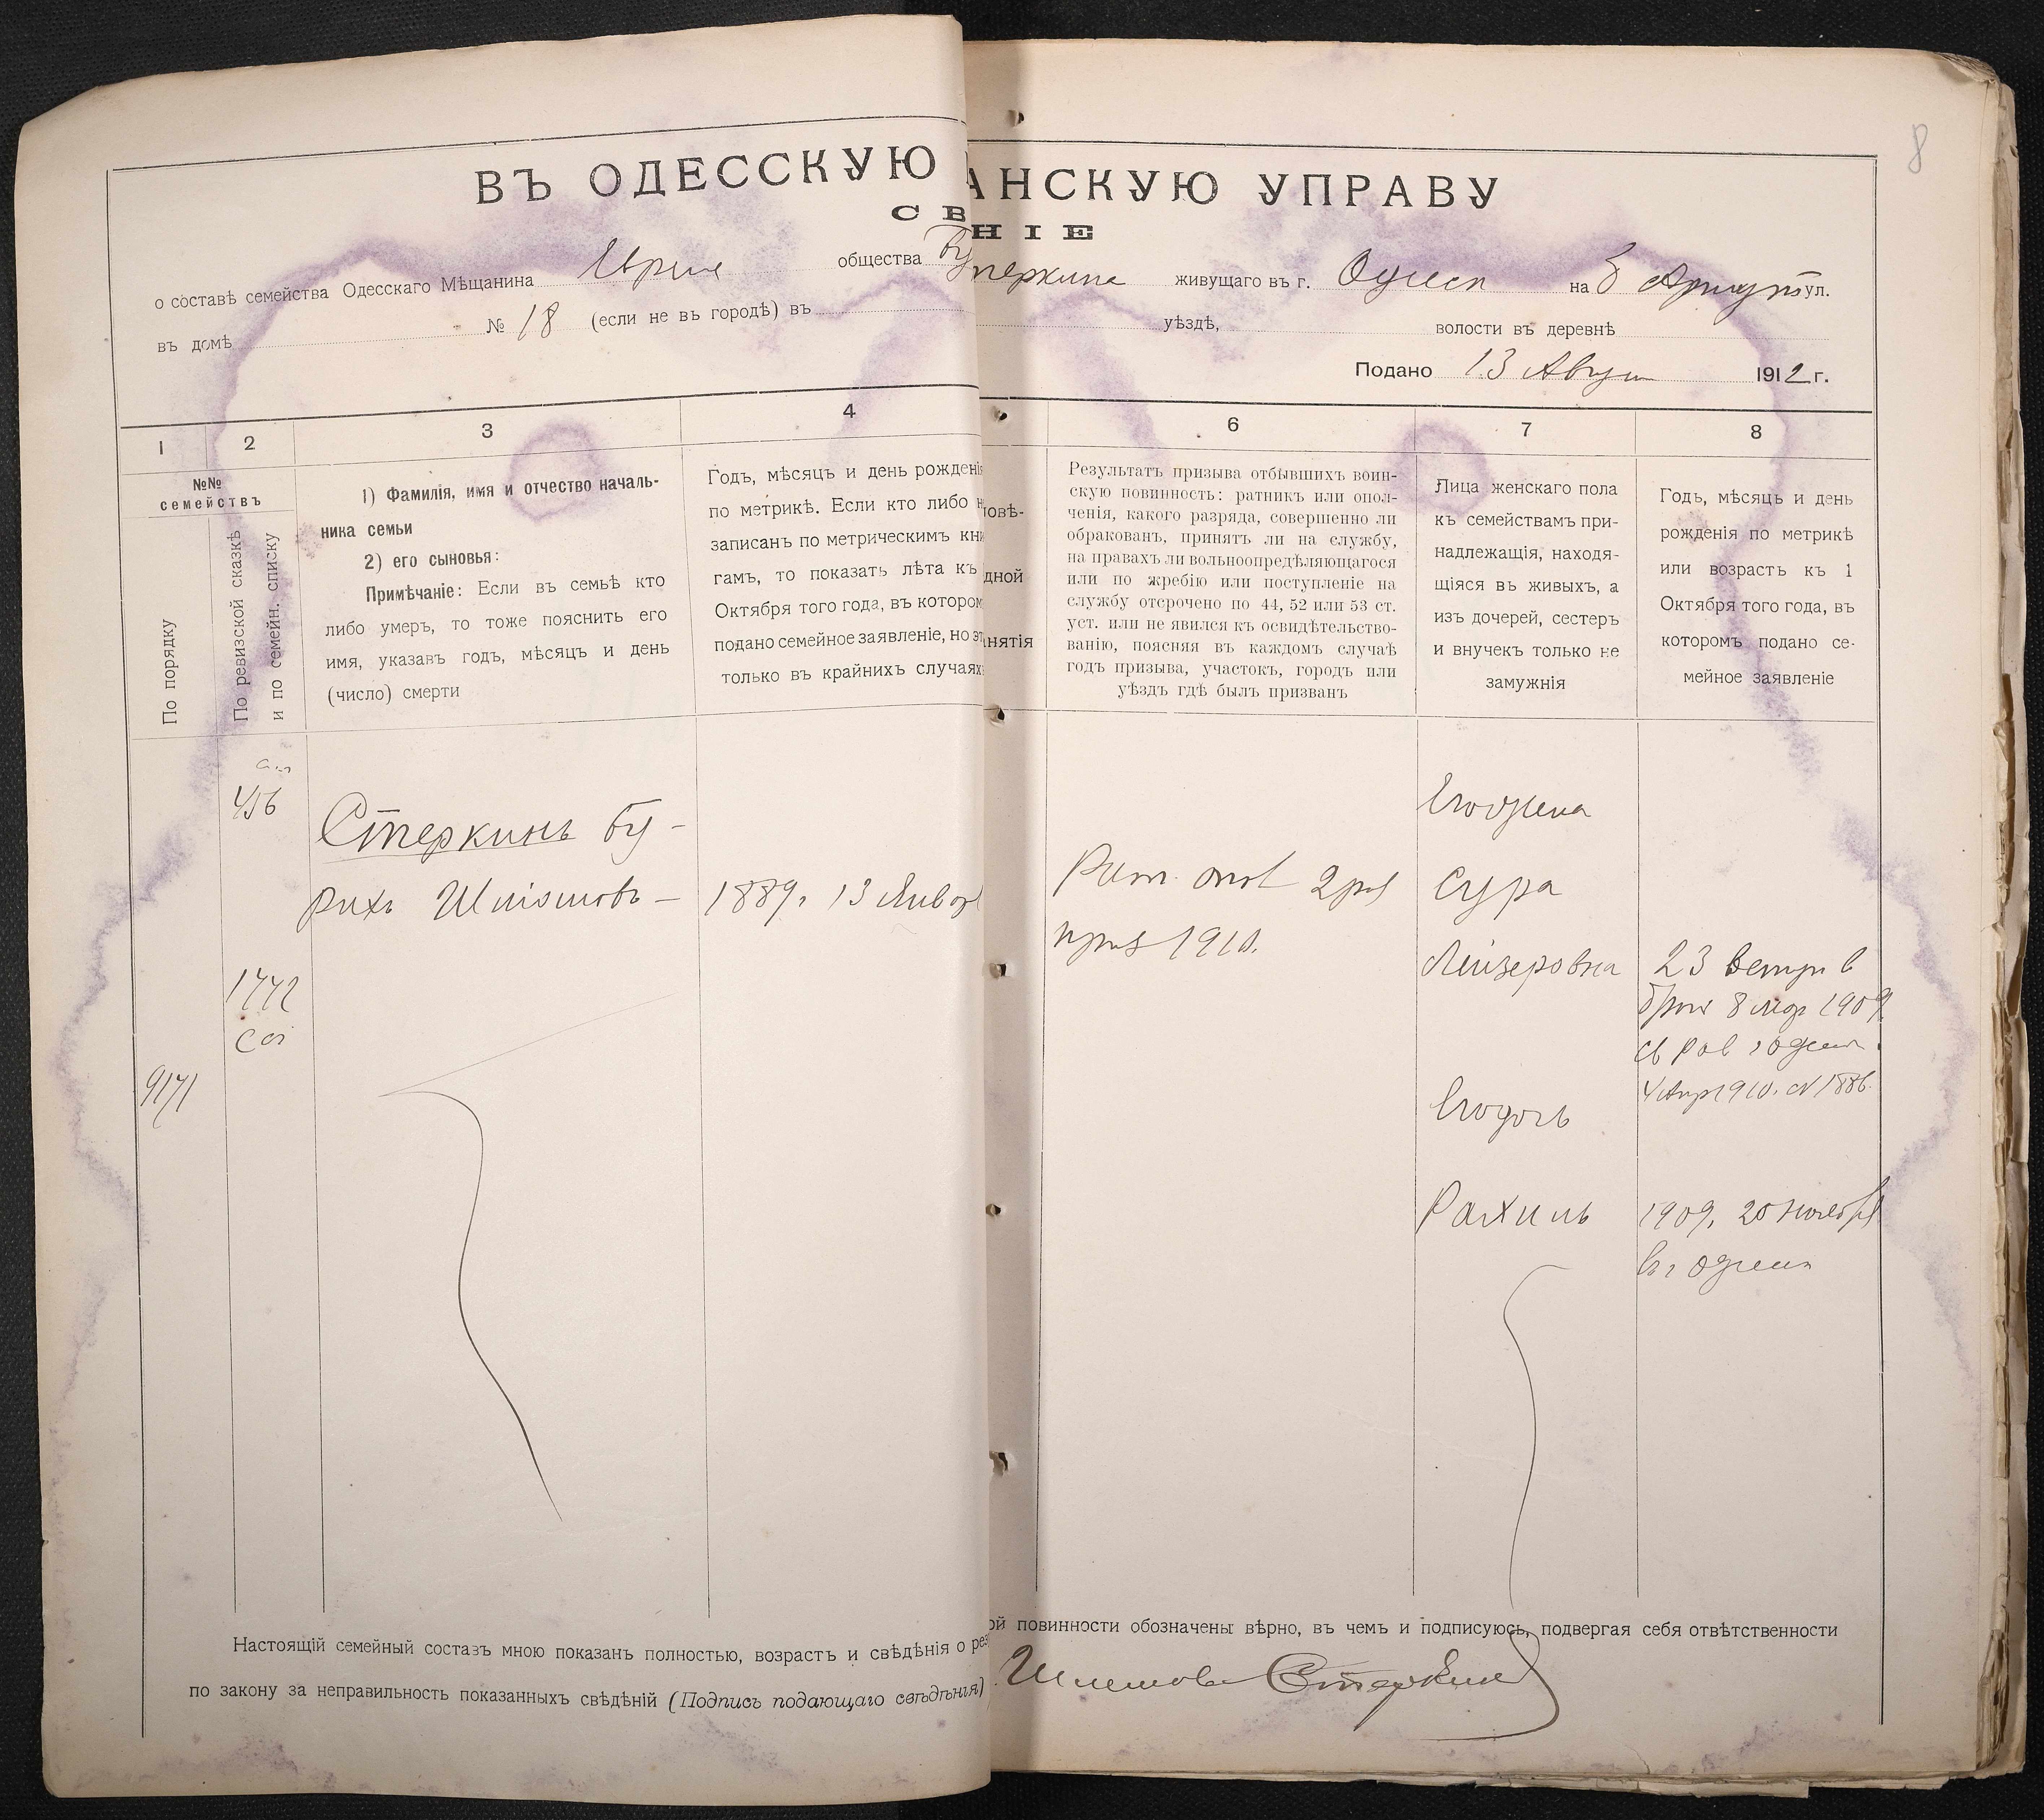 8
ВЪ ОДЕССКУЮ АНСКУЮ УПРАВУ
СВ НІЕ
о составѣ семейства Одесскаго Мѣщанина общества Бу теркина живущаго въ г. Одессѣ на Б Арнаут ул.
въ домѣ № 18 (если не въ городѣ) въ уѣздѣ, волости въ деревнѣ
Подано 13 Август 1912 г.
1 2 3 4 6 7 8
№№
семействъ
По порядку
По ревизской сказкѣ
и по семейн. списку
1) Фамилія, имя и отчество началь-
ника семьи
2) его сыновья:
Примѣчаніе: Если въ семьѣ кто
либо умеръ, то тоже пояснить его
имя, указавъ годъ, мѣсяцъ и день
(число) смерти
Годъ, мѣсяцъ и день рожденія
по метрикѣ. Если кто либо н
записанъ по метрическимъ кни
гамъ, то показать лѣта къ
Октября того года, въ котором
подано семейное заявленіе, но эт
только въ крайнихъ случаях
повѣ-
дной
нятія
Результатъ призыва отбывшихъ воин-
скую повинность: ратникъ или опол-
ченія, какого разряда, совершенно ли
обракованъ, принятъ ли на службу,
на правахъ ли вольноопредѣляющагося
или по жребію или поступленіе на
службу отсрочено по 44, 52 или 53 ст.
уст. или не явился къ освидѣтельство-
ванію, поясняя въ каждомъ случаѣ
годъ призыва, участокъ, городъ или
уѣздъ гдѣ былъ призванъ
Лица женскаго пола
къ семействамъ при-
надлежащія, находя-
щіяся въ живыхъ, а
изъ дочерей, сестеръ
и внучекъ только не
замужнія
Годъ, мѣсяцъ и день
рожденія по метрикѣ
или возрастъ къ 1
Октября того года, въ
которомъ подано се-
мейное заявленіе
456
Стеркинъ Бу-
рихъ Шліомовъ - 1889. 13 Январ
Рат. опол 2 раз
приз 1910.
1772
9171
Его жена
Сура
Лейзеровна
23
брак 8 мар 1909
4 Апр 1910. N 1886.
Его дочь
Рахиль
1909, 20 Ноября
в г Одессѣ
Настоящій семейный составъ мною показанъ полностью, возрастъ и свѣдѣнія о рез ой повинности обозначены вѣрно, въ чемъ и подписуюсь, подвергая себя отвѣтственности
по закону за неправильность показанныхъ свѣдѣній (Подпись подающаго свѣдѣнія) Шлемова Стеркин